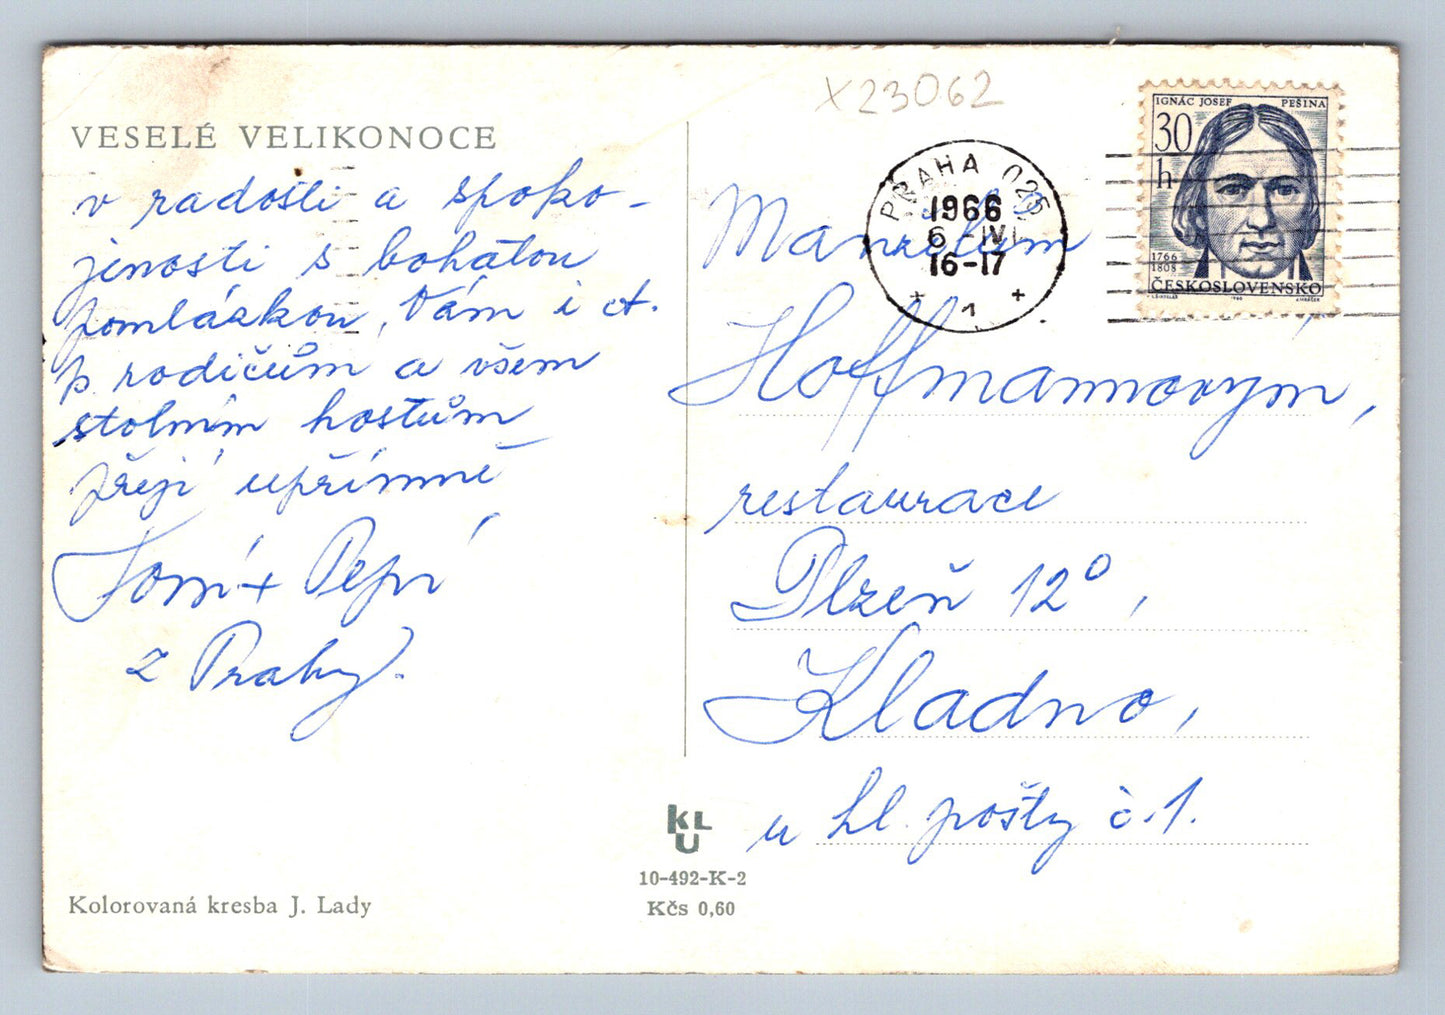 X23062
VESELÉ VELIKONOCE
v radosti a spoko-
jenosti s bohatou
pomlázkou, Vám i ct.
p. rodičům a všem
stolním hostům
přejí upřímně
Toní + Pepí
z Prahy.
Kolorovaná kresba J. Lady
KLU
10-492-K-2
Kčs 0,60
PRAHA 025
1966
6-IV
16-17
+ 1 +
IGNÁC JOSEF PEŠINA
30
h
1766
1808
ČESKOSLOVENSKO
1966
Manželům
Hoffmannovým,
restaurace
Plzeň 12°,
Kladno,
u hl. pošty č. 1.